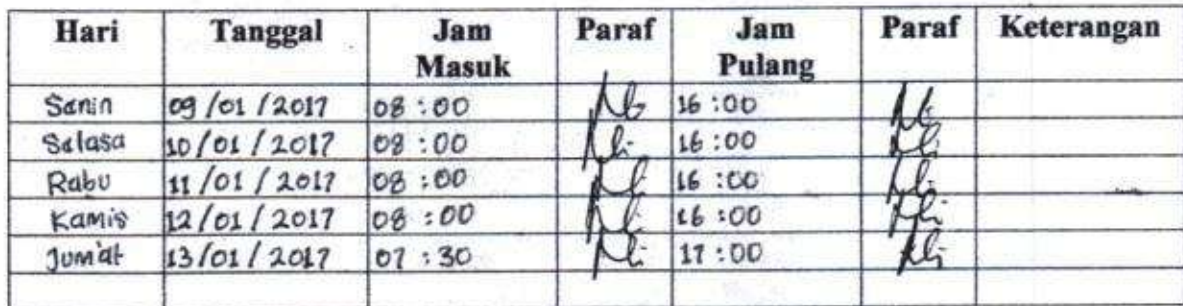 Hari Tanggal Jam Masuk Paraf Jam Pulang Paraf Keterangan
Senin 09/01/2017 08:00 16:00
Selasa 10/01/2017 08:00 16:00
Rabu 11/01/2017 08:00 16:00
Kamis 12/01/2017 08:00 16:00
Jum'at 13/01/2017 07:30 17:00